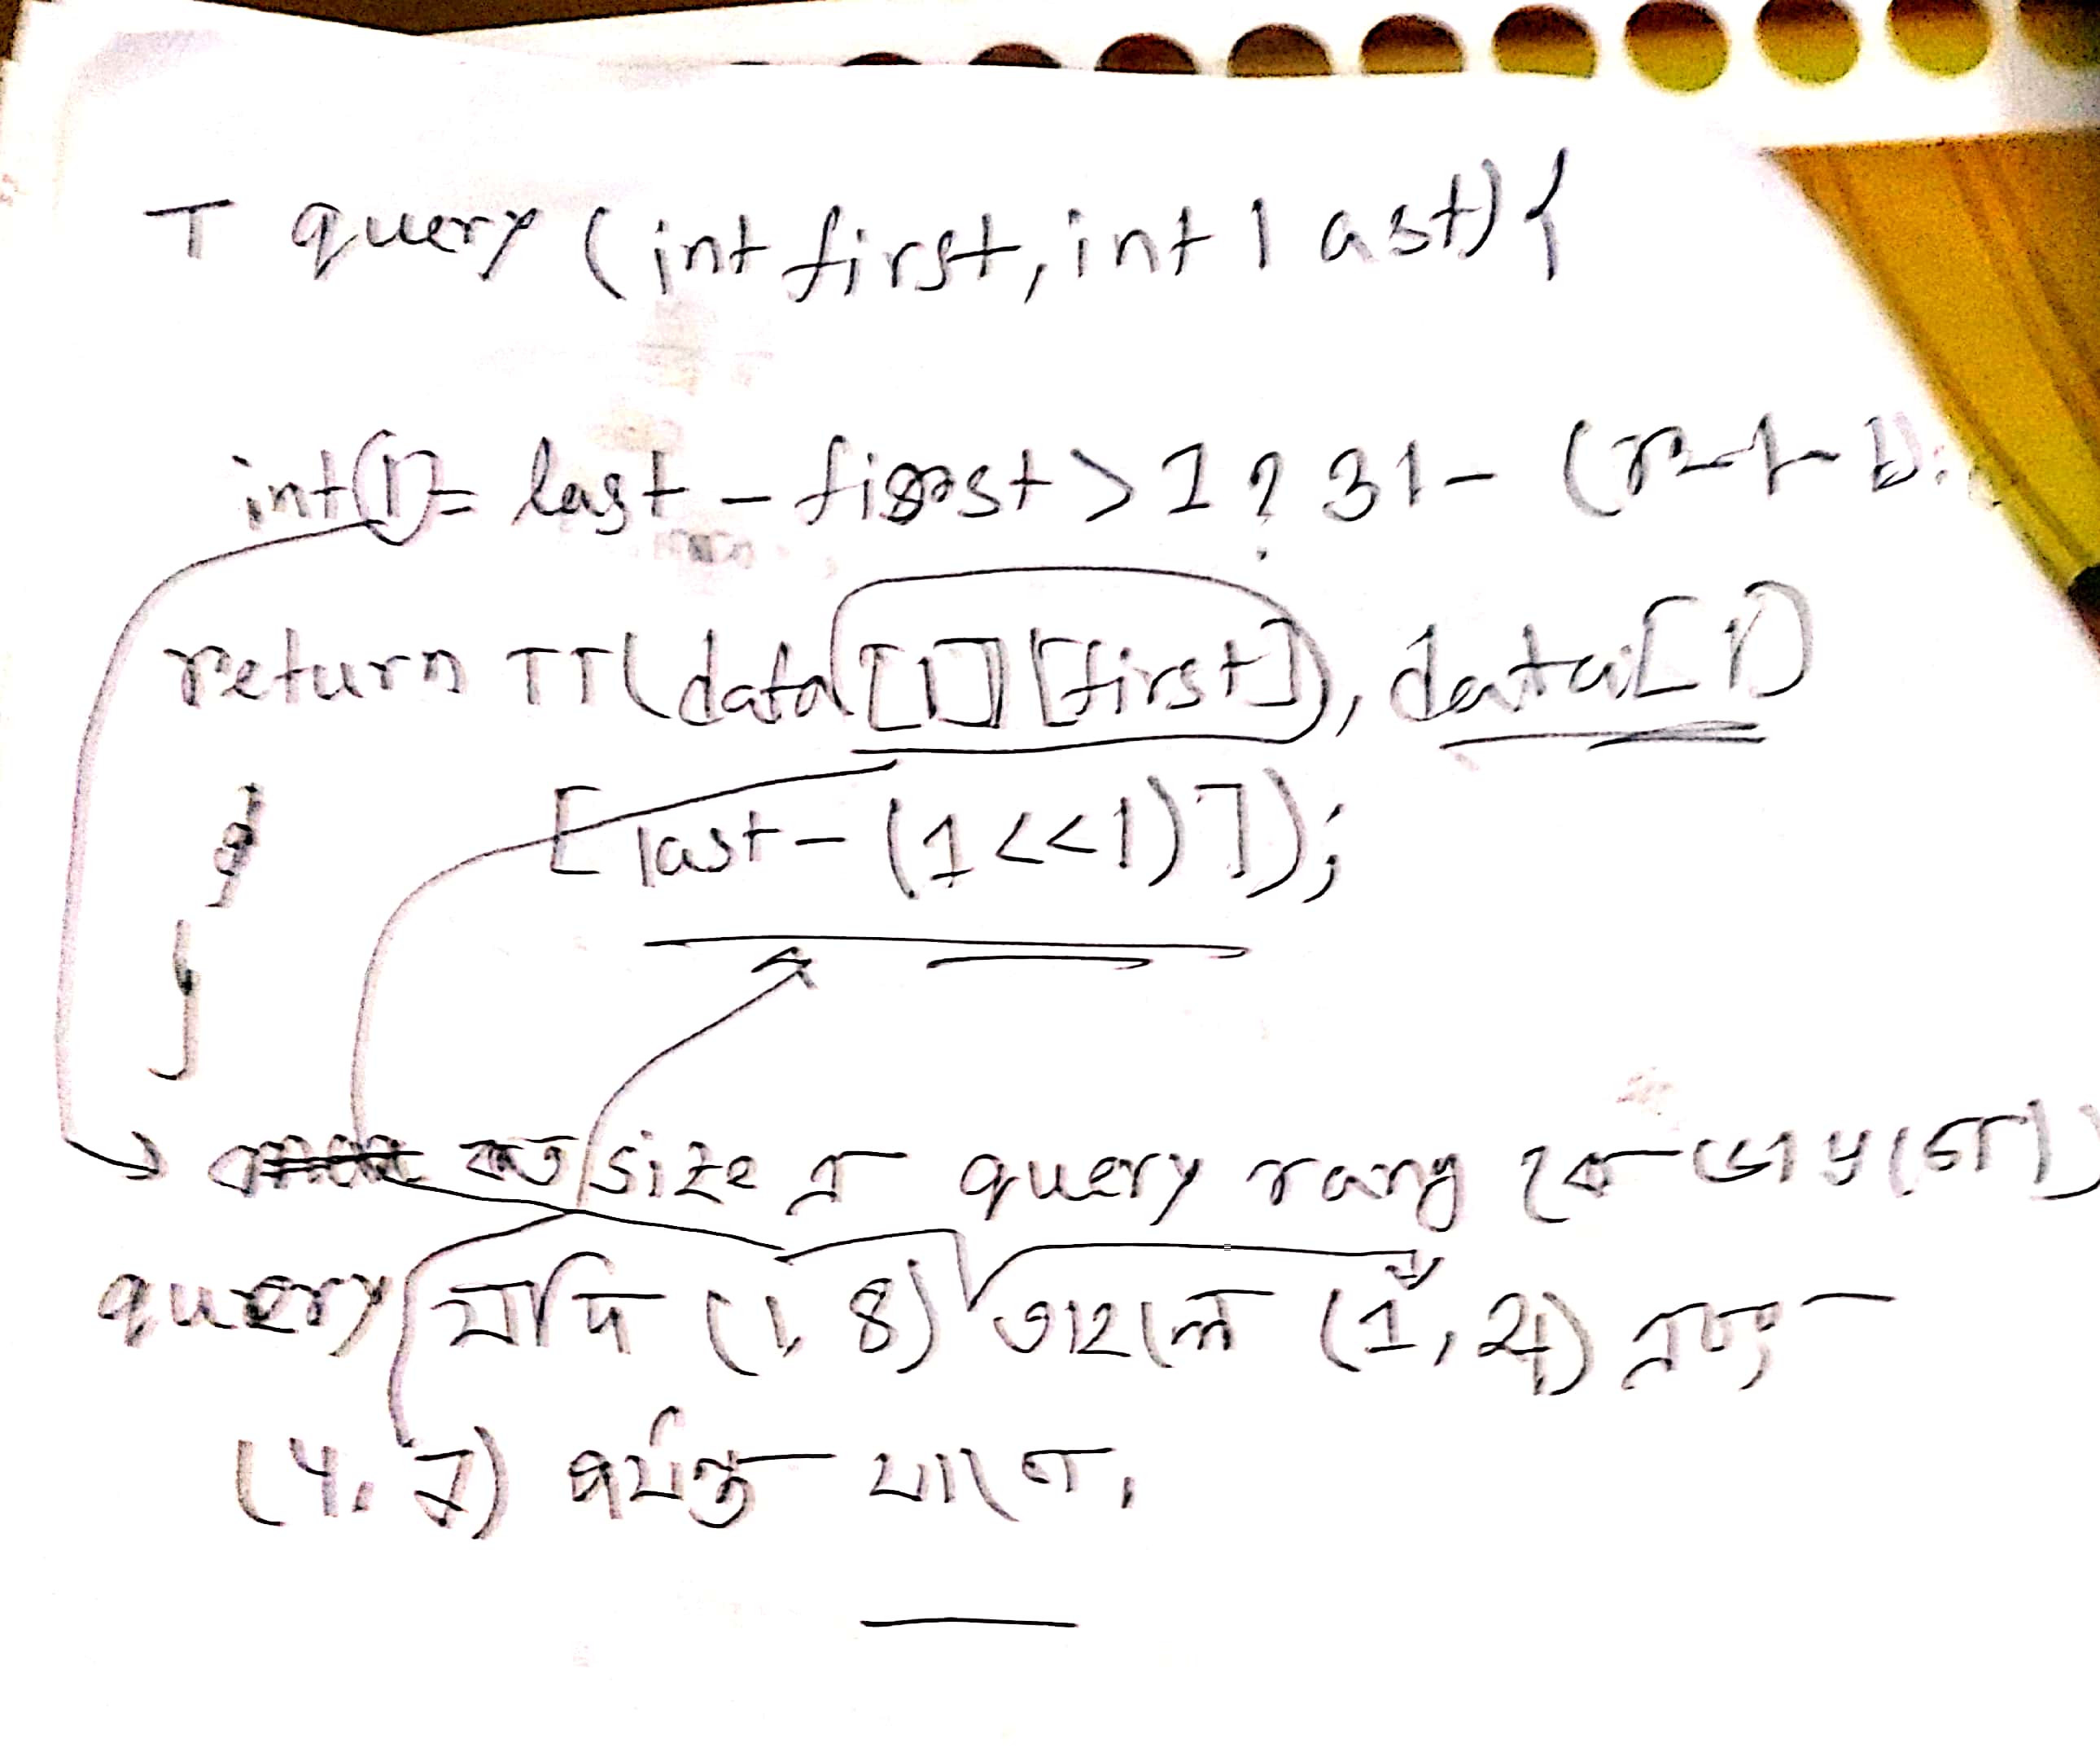 T query (int first, int last) {
int l = last - first > 1 ? 31 - (r - l - 1):
return TT(data[l][first]), data[l]
[last - (1<<l)]);
}
}
size এ query rang কে ভাগ
query যদি (1, 8) তাহলে (1, 4) এবং
(4, 7) পর্যন্ত যাবে,